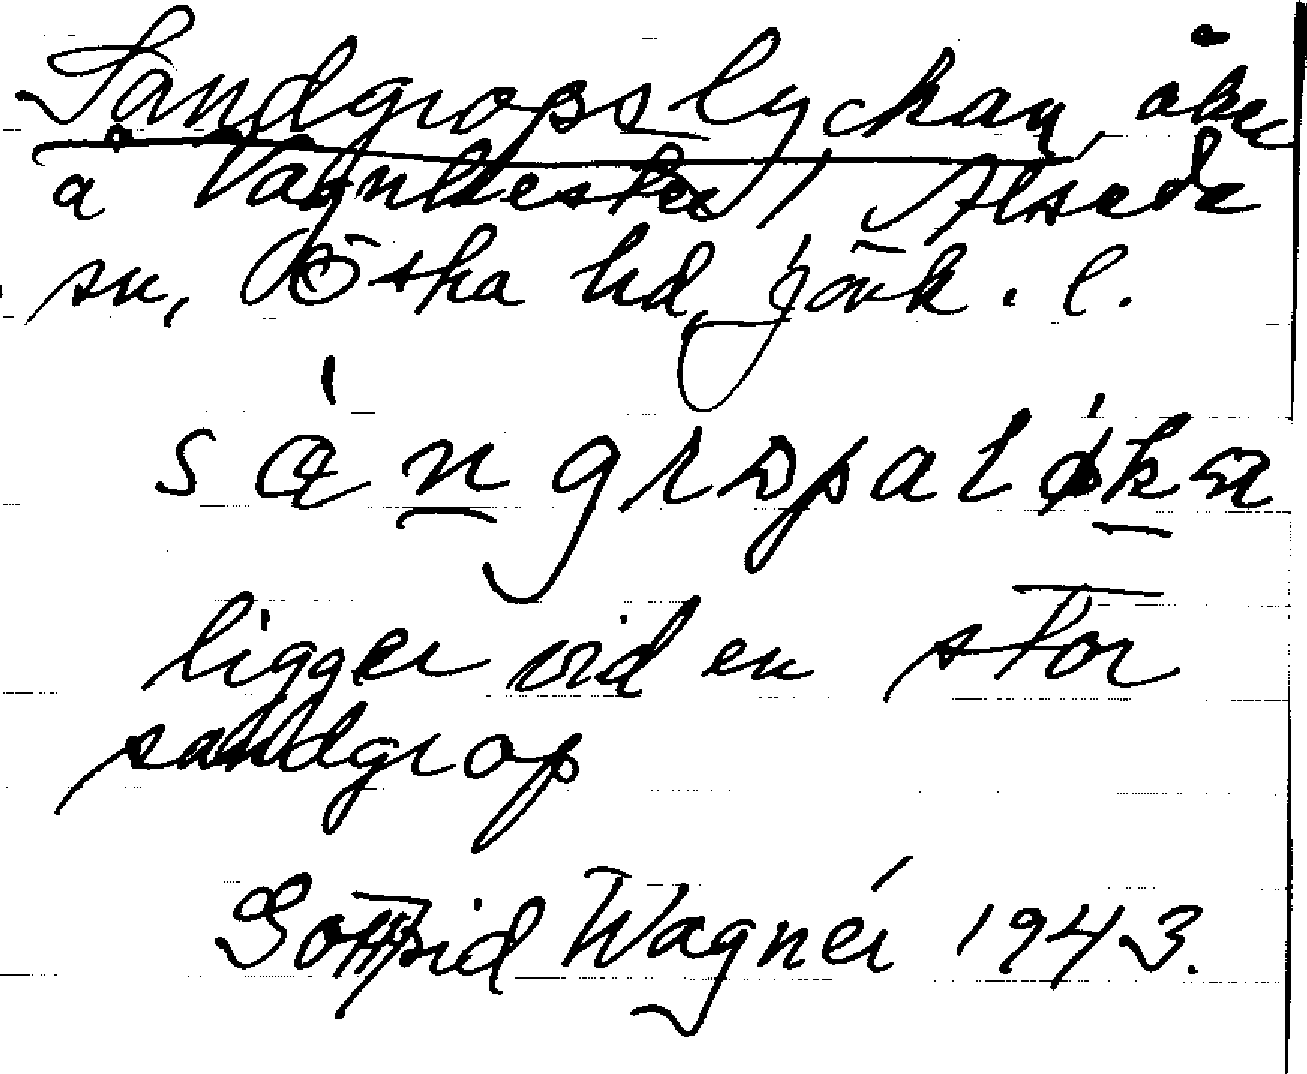 Sandgropslyckan, åker
å Vagnhester, Alseda
sn, Östra hd, Jönk. l.
ligger vid en stor
sandgrop
Gottfrid Wagnér 1943.